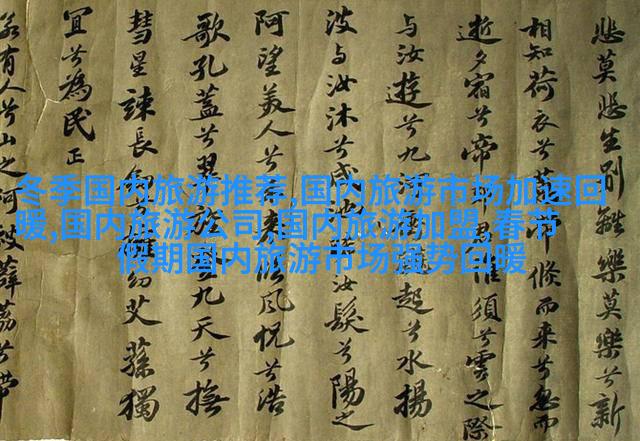 悲莫悲生別離樂莫樂兮新
相知荷衣兮儵而來兮忽而
逝夕宿兮帝誰須兮雲之際
与汝遊兮九河起兮水揚
波与汝沐兮咸池汝髮兮陽之
阿望美人兮臨風怳兮浩
歌孔蓋兮翠九天兮撫
彗星竦長劍幼艾蓀獨
宜兮為民正
若有人兮山之阿被薜荔兮帶
冬季国内旅游推荐,国内旅游市场加速回
暖,国内旅游公司,国内旅游加盟,春节
假期国内旅游市场强势回暖